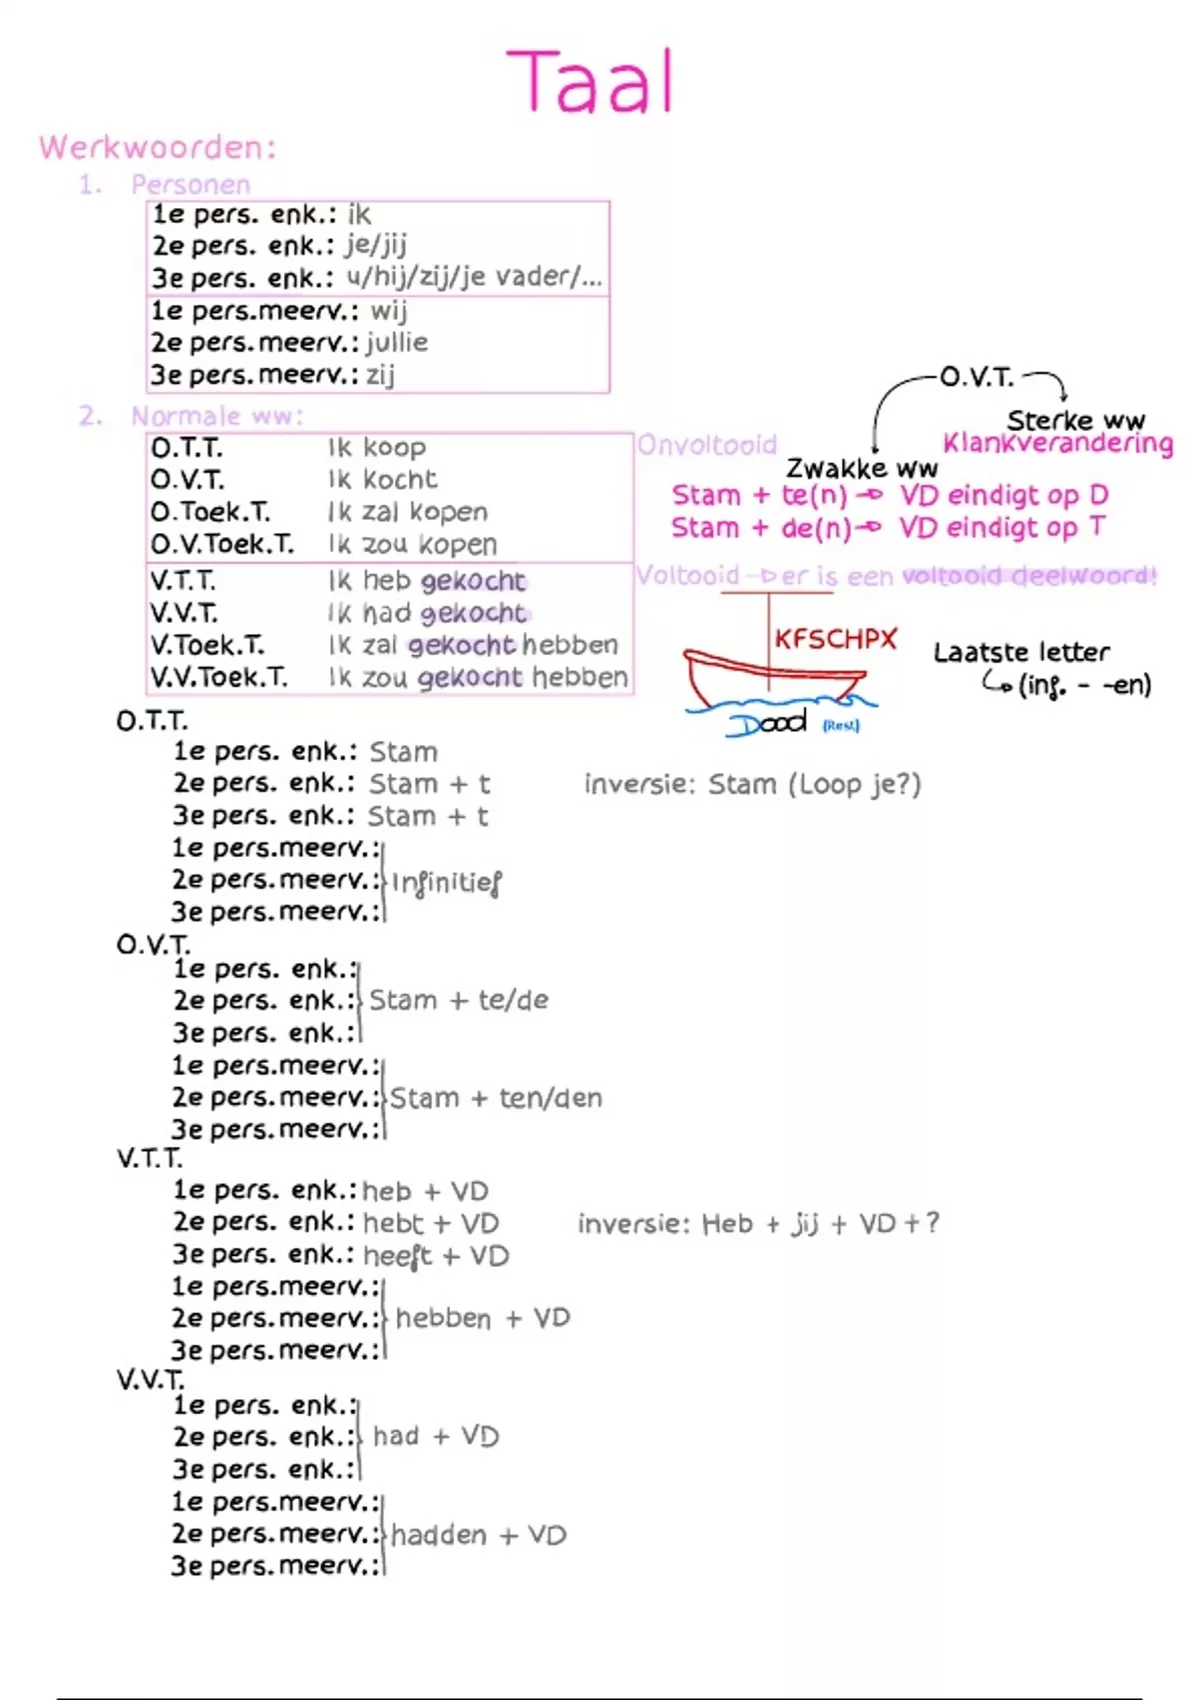 Taal
Werkwoorden:
1. Personen
1e pers. enk.: ik
2e pers. enk.: je/jij
3e pers. enk.: u/hij/zij/je vader/...
1e pers.meerv.: wij
2e pers.meerv.: jullie
3e pers.meerv.: zij
2. Normale ww:
O.T.T. Ik koop
O.V.T. Ik kocht
O.Toek.T. Ik zal kopen
O.V.Toek.T. Ik zou kopen
Onvoltooid
O.V.T.
Sterke ww
Klankverandering
Zwakke ww
Stam + te(n) → VD eindigt op D
Stam + de(n) → VD eindigt op T
V.T.T. Ik heb gekocht
V.V.T. Ik had gekocht
V.Toek.T. Ik zal gekocht hebben
V.V.Toek.T. Ik zou gekocht hebben
Voltooid → er is een voltooid deelwoord!
KFSCHPX
Dood (Rest)
Laatste letter
↳ (inf. - -en)
O.T.T.
1e pers. enk.: Stam
2e pers. enk.: Stam + t inversie: Stam (Loop je?)
3e pers. enk.: Stam + t
1e pers.meerv.:
2e pers.meerv.: Infinitief
3e pers.meerv.:
O.V.T.
1e pers. enk.:
2e pers. enk.: Stam + te/de
3e pers. enk.:
1e pers.meerv.:
2e pers.meerv.: Stam + ten/den
3e pers.meerv.:
V.T.T.
1e pers. enk.: heb + VD
2e pers. enk.: hebt + VD inversie: Heb + jij + VD + ?
3e pers. enk.: heeft + VD
1e pers.meerv.:
2e pers.meerv.: hebben + VD
3e pers.meerv.:
V.V.T.
1e pers. enk.:
2e pers. enk.: had + VD
3e pers. enk.:
1e pers.meerv.:
2e pers.meerv.: hadden + VD
3e pers.meerv.: